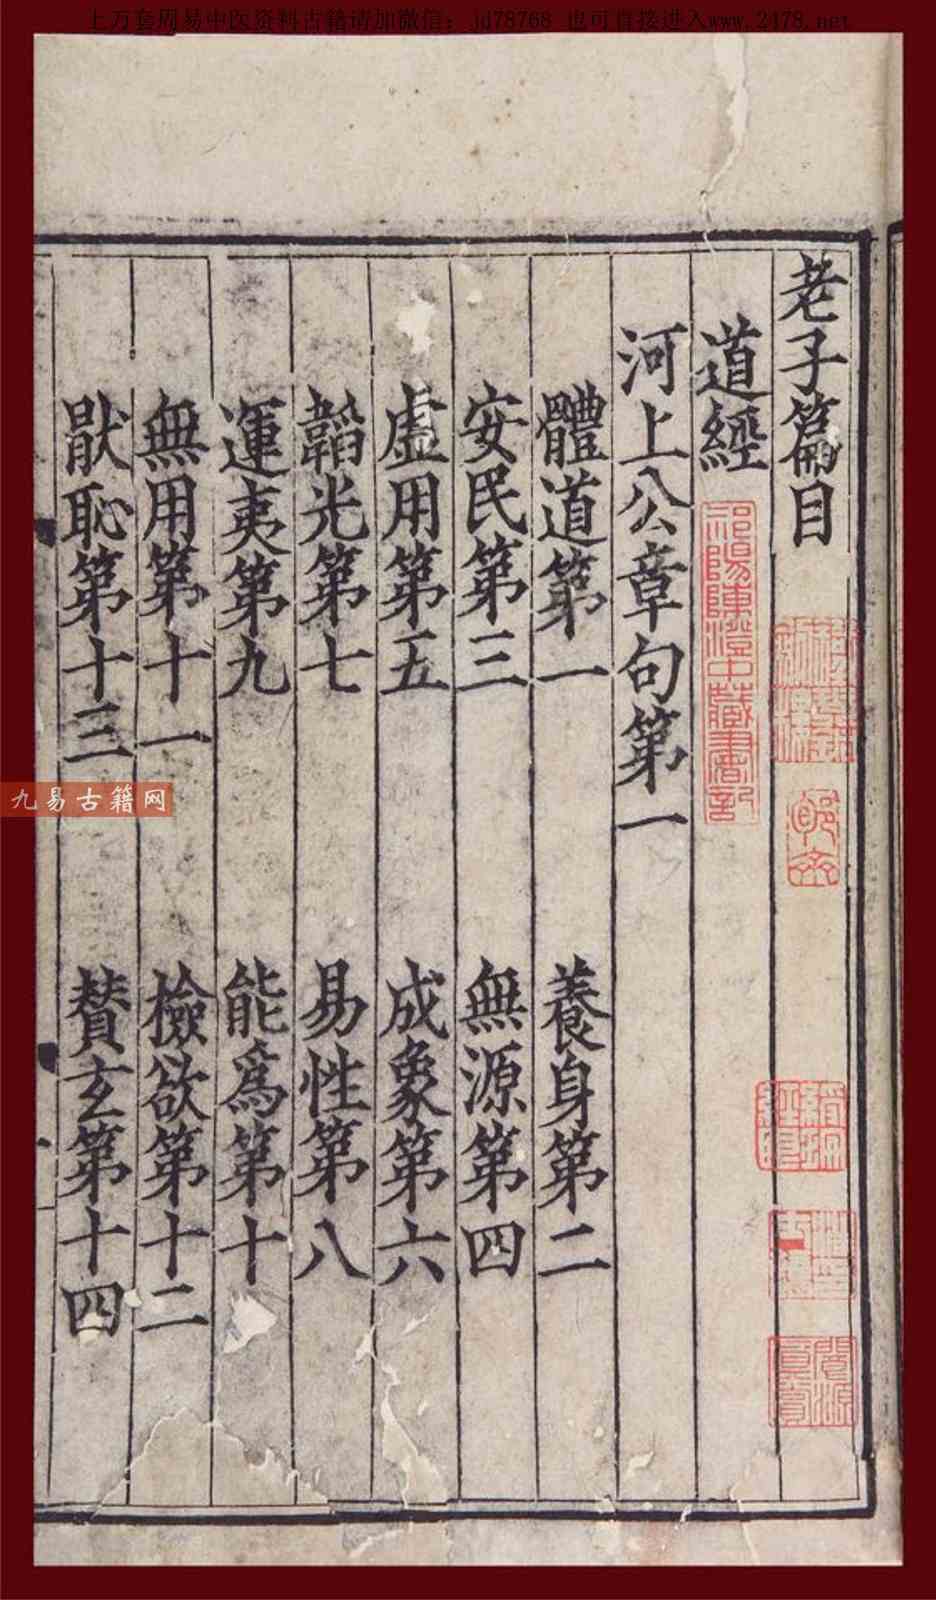 上万套周易中医资料古籍请加微信：jd78768 也可直接进入www.2478.net
老子篇目
道經
河上公章句第一
體道第一 養身第二
安民第三 無源第四
虛用第五 成象第六
韜光第七 易性第八
運夷第九 能爲第十
無用第十一 檢欲第十二
猒恥第十三 賛玄第十四
祁陽陳澄中藏書記
閬源真賞
九易古籍网